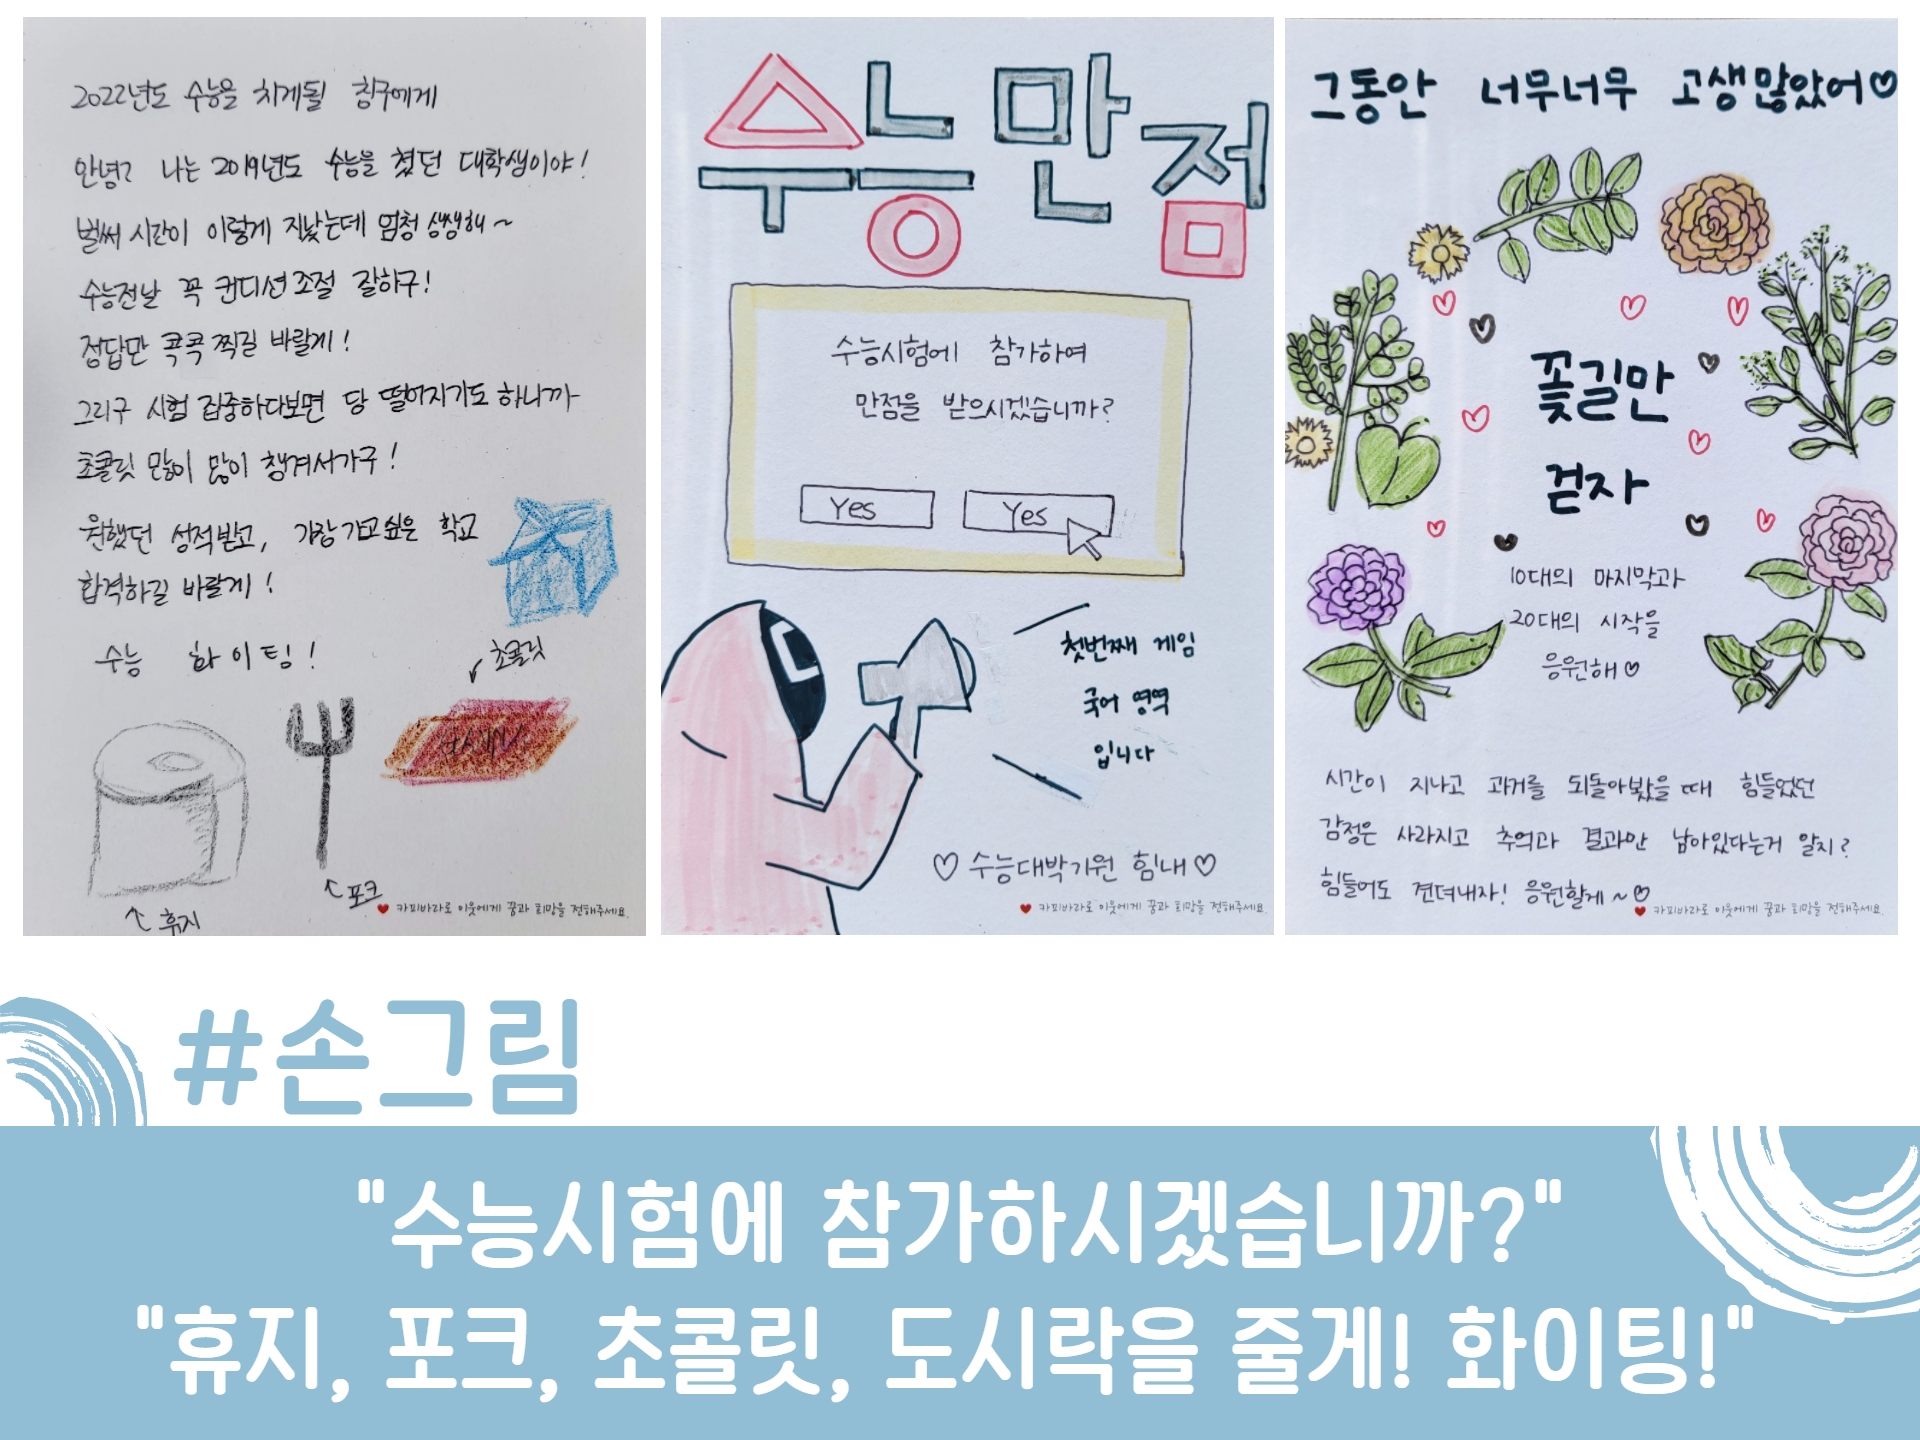 2022년도 수능을 치게될 친구에게
안녕? 나는 2019년도 수능을 쳤던 대학생이야!
벌써 시간이 이렇게 지났는데 엄청 생생해~
수능전날 꼭 컨디션조절 잘하구!
정답만 콕콕 찍길 바랄게!
그리구 시험 집중하다보면 당 떨어지기도 하니까
초콜릿 많이 많이 챙겨서가구!
원했던 성적받고, 가장가고싶은 학교
합격하길 바랄게!
수능 화이팅!
초콜릿
포크
휴지
카피바라로 이웃에게 꿈과 희망을 전해주세요.
수능만점
수능시험에 참가하여
만점을 받으시겠습니까?
Yes Yes
첫번째 게임
국어 영역
입니다
♡수능대박기원 힘내♡
카피바라로 이웃에게 꿈과 희망을 전해주세요.
그동안 너무너무 고생많았어♡
꽃길만
걷자
10대의 마지막과
20대의 시작을
응원해♡
시간이 지나고 과거를 되돌아봤을때 힘들었던
감정은 사라지고 추억과 결과만 남아있다는거 알지?
힘들어도 견뎌내자! 응원할게~♡
카피바라로 이웃에게 꿈과 희망을 전해주세요.
#손그림
"수능시험에 참가하시겠습니까?"
"휴지, 포크, 초콜릿, 도시락을 줄게! 화이팅!"